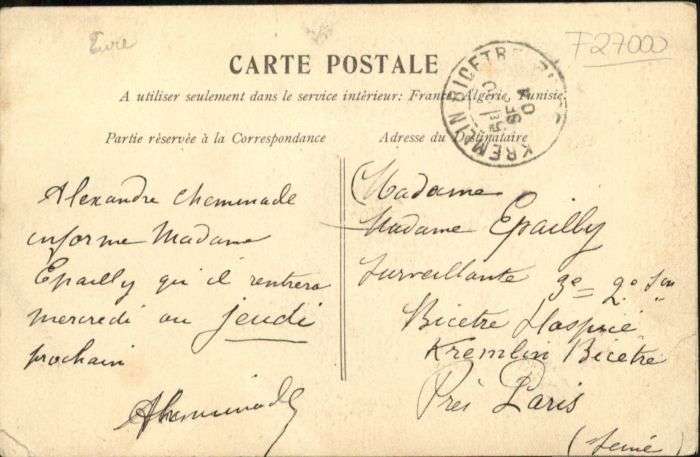 Eure
F27000
CARTE POSTALE
A utiliser seulement dans le service intérieur: France, Algérie, Tunisie.
Partie réservée à la Correspondance
Adresse du Destinataire
KREMLIN BICETRE
Alexandre Cheminade
informe Madame
Epailly qu'il rentrera
mercredi ou jeudi
prochain
ACheminade
(Madame
Madame Epailly
Surveillante 3e = 2o
Bicetre Hospice
Kremlin Bicetre
Près Paris
(Seine)